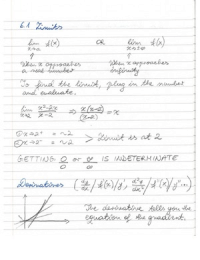 6.1 Limits
lim f(x) OR lim f(x)
x→a x→∞
When x approaches When x approaches
a real number infinity
To find the limit, plug in the number
and evaluate.
lim x²-2x / x-2 ⇒ x(x-2) / (x-2) = x
x→2
> Limit is at 2
GETTING 0/0 or ∞/∞ IS INDETERMINATE
Derivatives ( dy/dx / f'(x) / y', d²y/dx² / f''(x) / y'' )
The derivative tells you the
equation of the gradient.